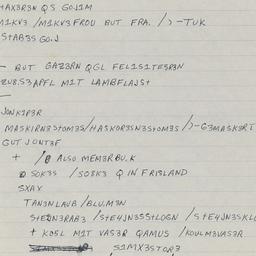 HAX3R3N QS GOJ1M
M1KV3 /M1KV3FROU BUT FRA. / )-TUK
STAB3S GO.J
- BUT GAZ3RN QGL FEL1S1TE5R3N
ZUB.S3APFL M1T LAMBFLAJST
JONK1F3R
MASKIRN3STOM3S/HASKOR3SN3STOM3S/)-G3MASK3RT
GUT JONT3F
+ / ALSO MEM3RBU.K
SOK3S /SO8K3 Q IN FRISLAND
SXAY
TAN3NLAUB /BLU.M3N
STE2N3RAB3 /STE4JN3SSTLOGN /STE4JN3SKL
+ KO5L M1T VAS3R QAMUS /KOULM3VAS3R
S1MX3STOR3